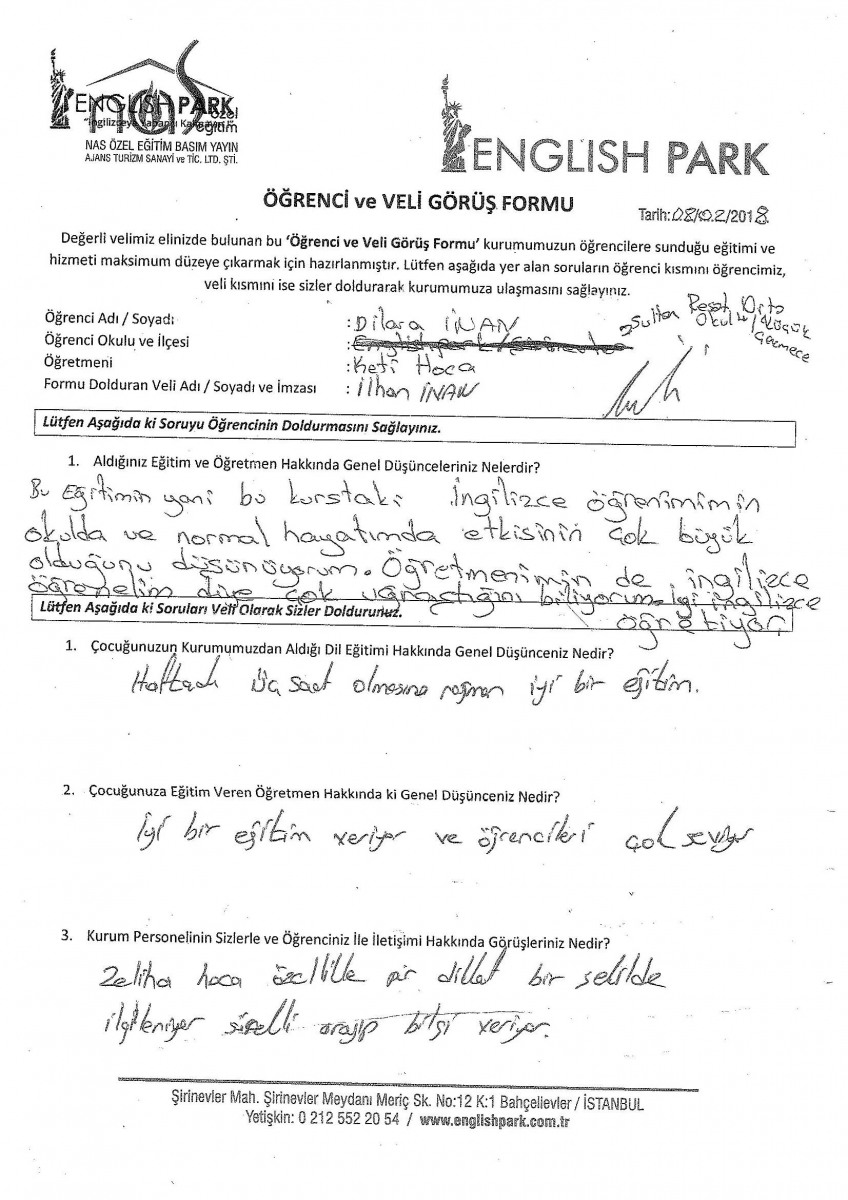 ENGLISH PARK
nas özel eğitim
NAS ÖZEL EĞİTİM BASIM YAYIN
AJANS TURİZM SANAYİ ve TİC. LTD. ŞTİ.
ENGLISH PARK
ÖĞRENCİ ve VELİ GÖRÜŞ FORMU
Tarih:08/02/2018
Değerli velimiz elinizde bulunan bu ‘Öğrenci ve Veli Görüş Formu’ kurumumuzun öğrencilere sunduğu eğitimi ve
hizmeti maksimum düzeye çıkarmak için hazırlanmıştır. Lütfen aşağıda yer alan soruların öğrenci kısmını öğrencimiz,
veli kısmını ise sizler doldurarak kurumumuza ulaşmasını sağlayınız.
Öğrenci Adı / Soyadı : Dilara İNAN
Öğrenci Okulu ve İlçesi : Sultan Reşat Orta
Okulu / Küçük
Çekmece
Öğretmeni : Keti Hoca
Formu Dolduran Veli Adı / Soyadı ve İmzası : İlhan İNAN
Lütfen Aşağıda ki Soruyu Öğrencinin Doldurmasını Sağlayınız.
1. Aldığınız Eğitim ve Öğretmen Hakkında Genel Düşünceleriniz Nelerdir?
Bu Eğitimin yani bu kurstaki İngilizce öğrenimimin
okulda ve normal hayatımda etkisinin çok büyük
olduğunu düşünüyorum. Öğretmenimin de ingilizce
öğrenelim diye çok uğraştığını biliyorum. İyi ingilizce
öğretiyor!
Lütfen Aşağıda ki Soruları Veli Olarak Sizler Doldurunuz.
1. Çocuğunuzun Kurumumuzdan Aldığı Dil Eğitimi Hakkında Genel Düşünceniz Nedir?
Haftada üç saat olmasına rağmen iyi bir eğitim.
2. Çocuğunuza Eğitim Veren Öğretmen Hakkında ki Genel Düşünceniz Nedir?
iyi bir eğitim veriyor ve öğrencileri çok seviyor
3. Kurum Personelinin Sizlerle ve Öğrenciniz İle İletişimi Hakkında Görüşleriniz Nedir?
Zeliha hoca özellikle pür dikkat bir şekilde
ilgileniyor sürekli arayıp bilgi veriyor.
Şirinevler Mah. Şirinevler Meydanı Meriç Sk. No:12 K:1 Bahçelievler / İSTANBUL
Yetişkin: 0 212 552 20 54 / www.englishpark.com.tr